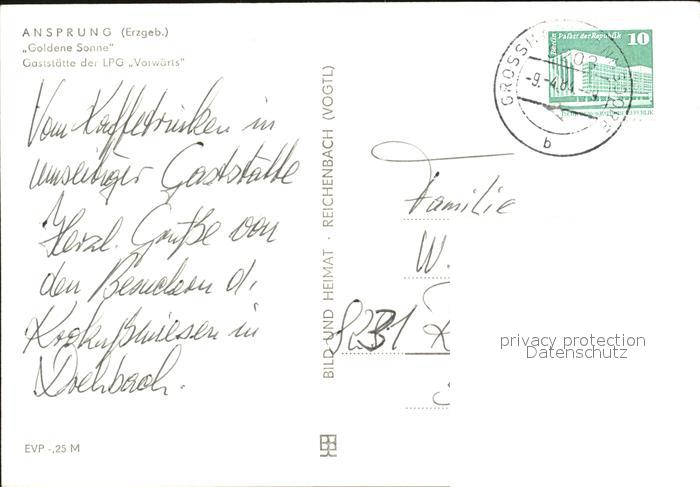 ANSPRUNG (Erzgeb.)
„Goldene Sonne"
Gaststätte der LPG „Vorwärts"
Vom Kaffetrinken in
umseitiger Gaststätte
Herzl. Grüße von
den Besuchern d.
Krokußwiesen in
Drehbach.
EVP -,25 M
BILD UND HEIMAT · REICHENBACH (VOGTL)
Familie
W.
8231
10
Berlin Palast der Republik
-9.-4.81
b
privacy protection
Datenschutz